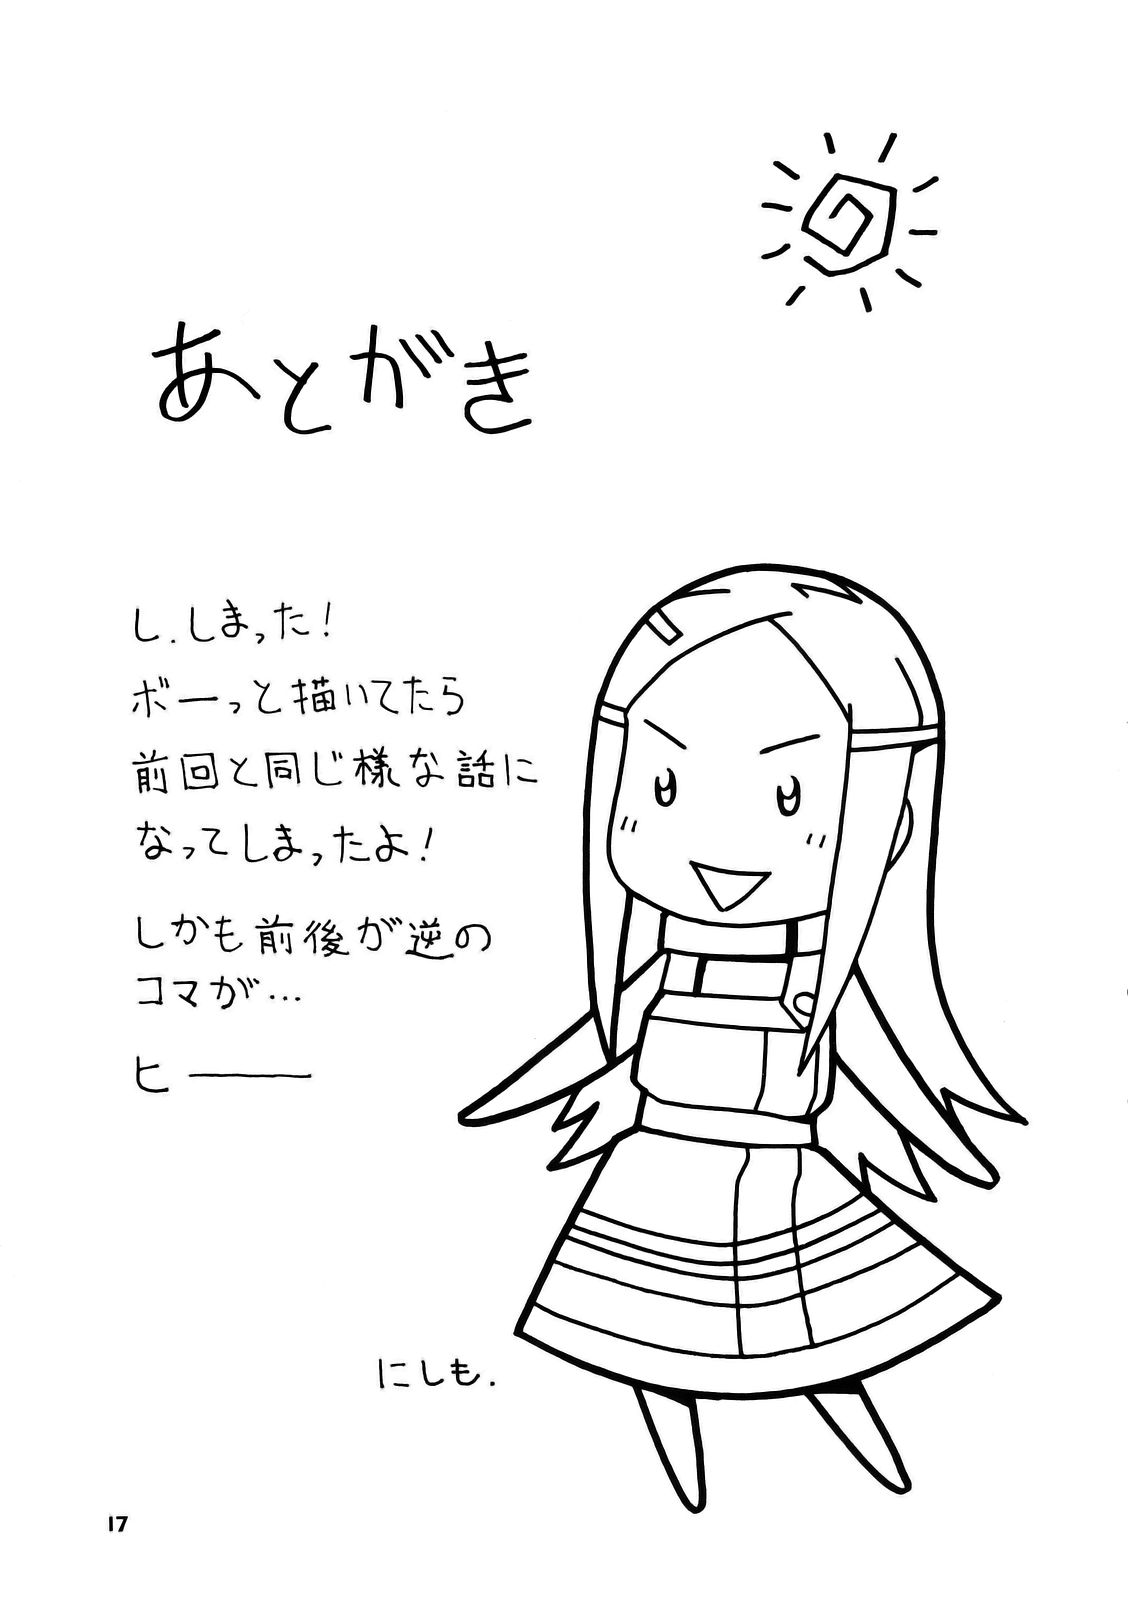 あとがき
し.しまった!
ボーっと描いてたら
前回と同じ様な話に
なってしまったよ!
しかも前後が逆の
コマが…
ヒ――
にしも.
17